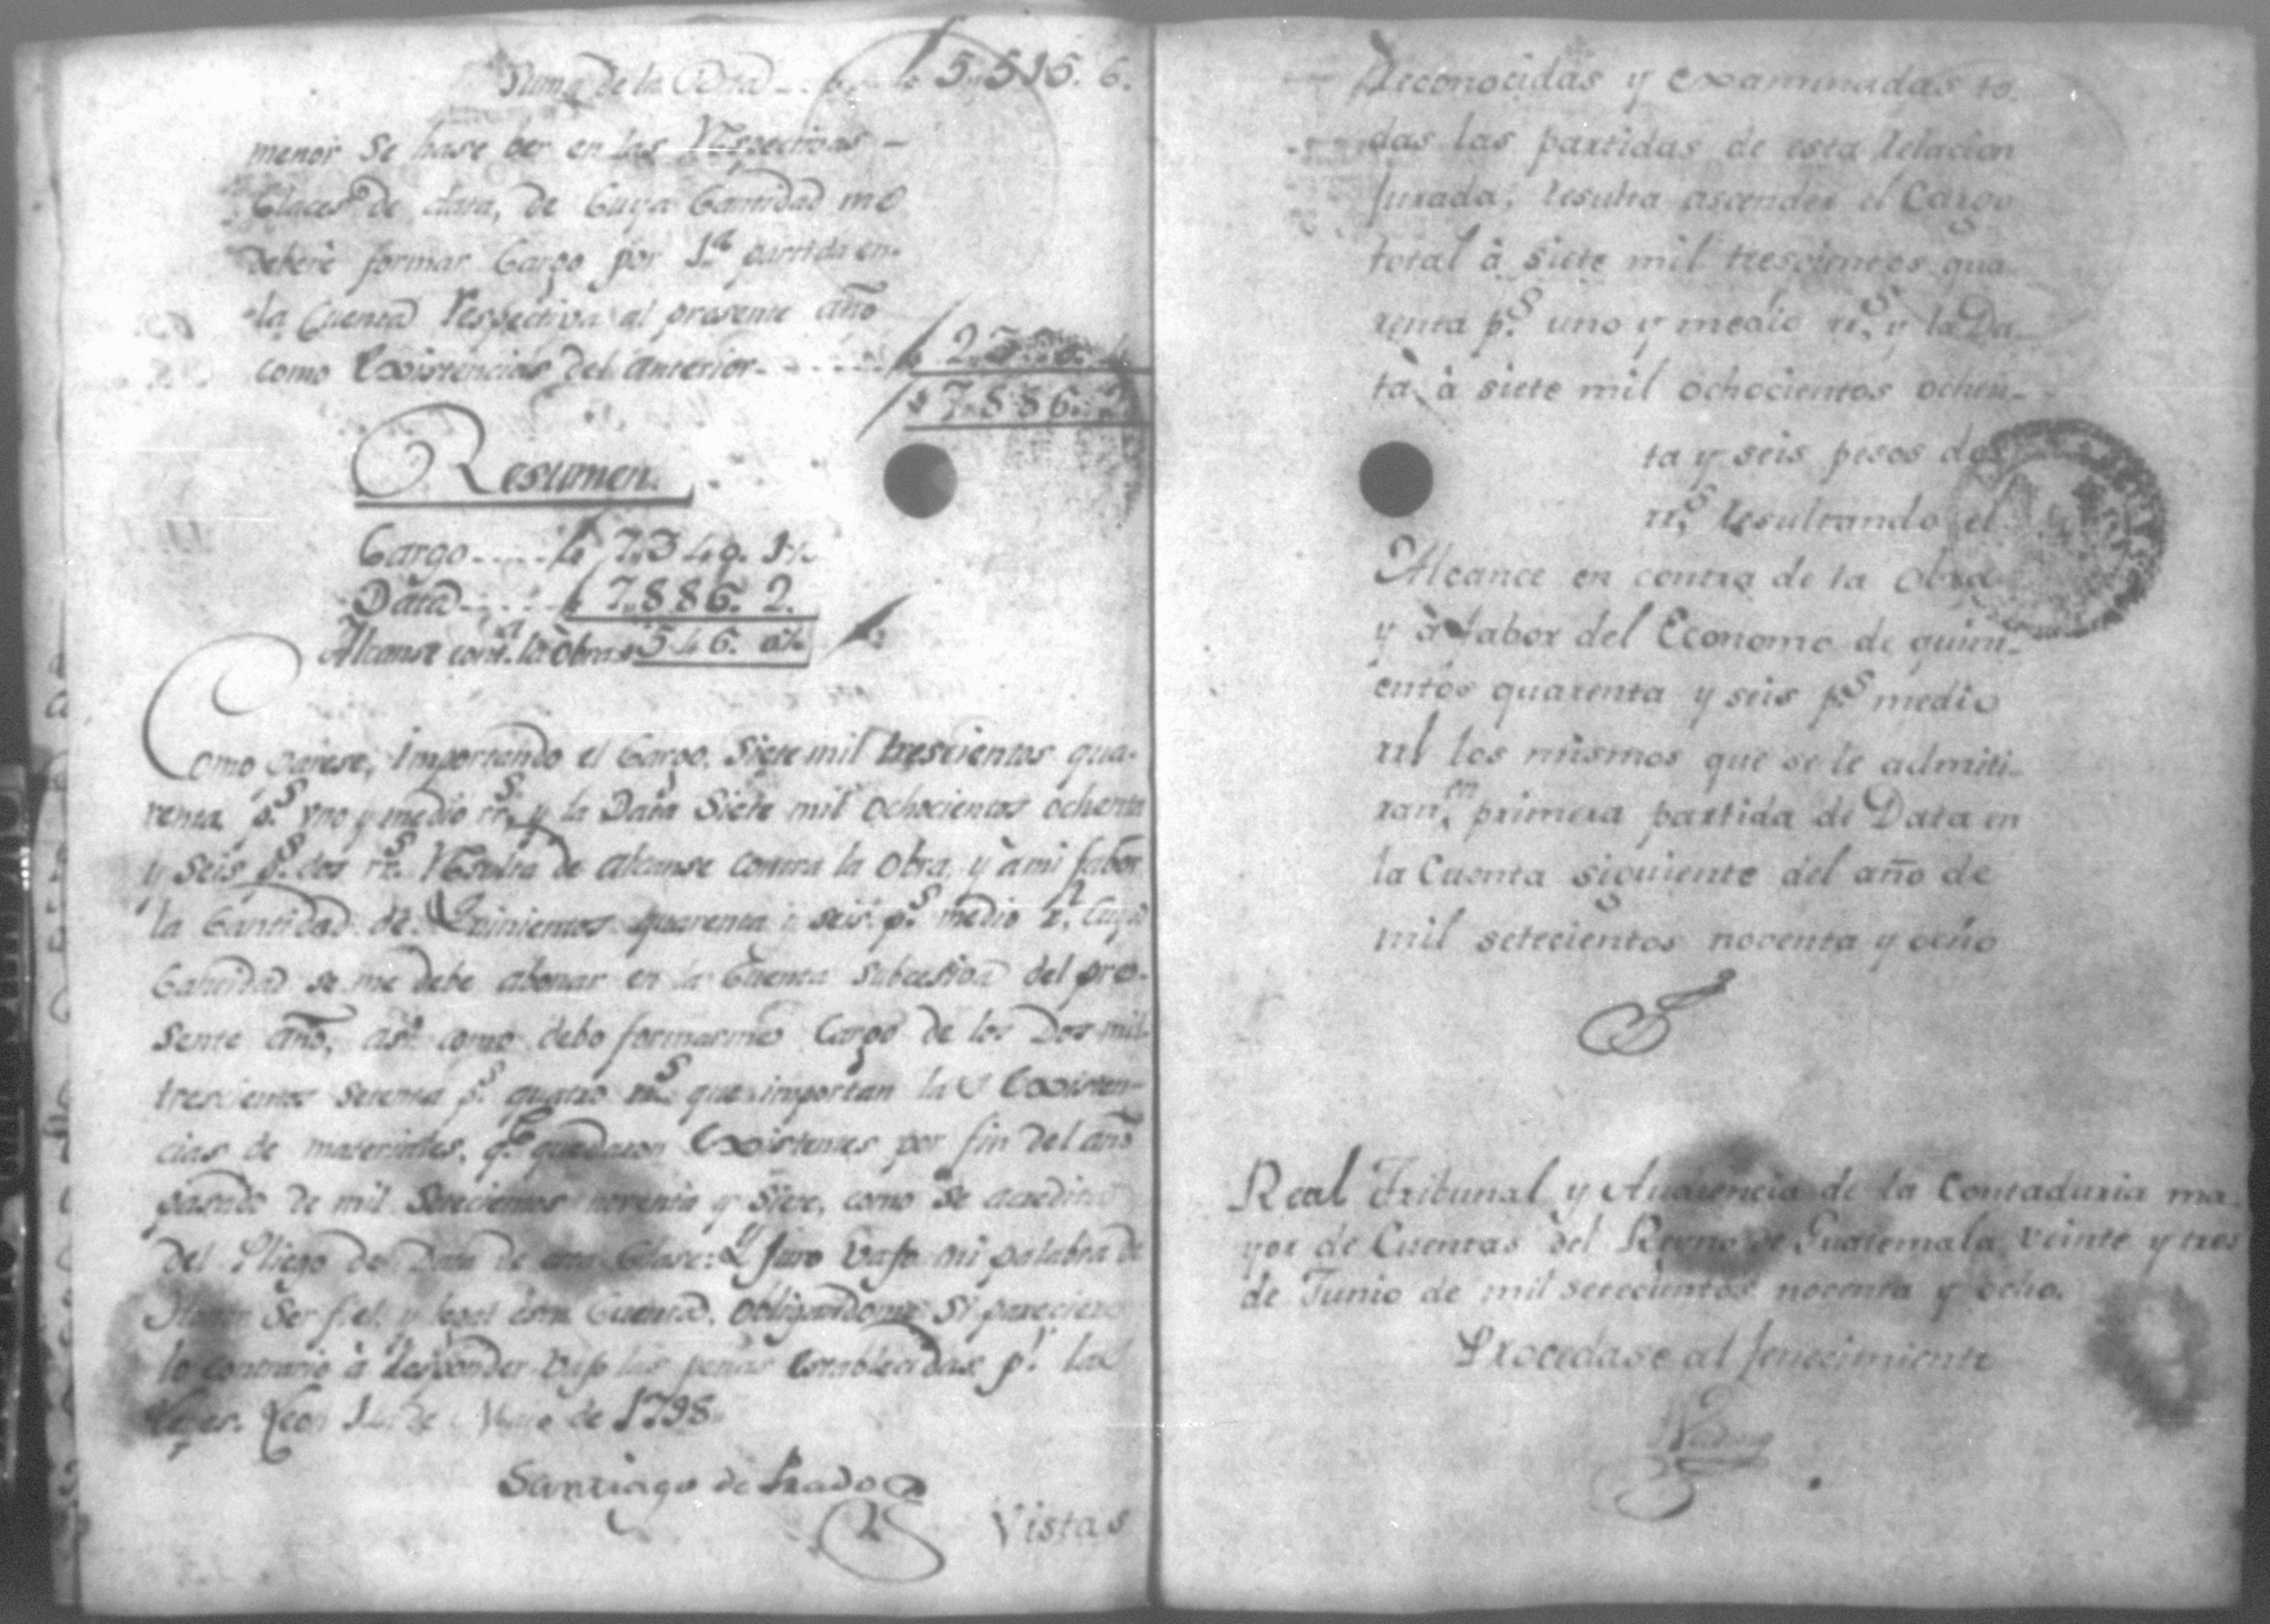 Suma de la Data $ 5,,515. 6.
menor se hase ber en las Respectivas
Claces de data, de Cuya Cantidad me
deberé formar Cargo por 1.a partida en
la Cuenta respectiva al presente año
como Existencias del anterior $ 2,,370. 4
$ 7,,886. 2
Resumen.
Cargo $ 7,,340. 1½
Data $ 7,,886. 2.
Alcanse cont.a la Obra $ 546. 0½
Como parese, importando el Cargo, Siete mil trescientos qua-
renta p.s uno y medio rr.s y la Data Siete mil ochocientos ochenta
y seis p.s dos rr.s Resulta de alcanse contra la obra, y à mi fabor
la Cantidad de Quinientos quarenta i seis p.s medio r.l Cuya
Cantidad se me debe abonar en la Cuenta subcesiva del pre-
sente año, asi como debo formarme Cargo de los Dos mil
trescientos setenta p.s quatro rr.s que importan las Existen-
cias de materiales, q.e quedaron Existentes por fin del año
pasado de mil Setecientos noventa y Siete, como se acredita
del Pliego de Data de esta Clase: Y Juro bajo mi palabra de
Honor Ser fiel, y legal esta Cuenta, obligandome si pareciere
lo contrario à Responder bajo las penas establecidas p.r las
Leyes. Leon 14 de Mayo de 1798.
Santiago de Prado
Vistas
Reconocidas y examinadas to-
das las partidas de esta Relacion
Jurada, resulta ascender el Cargo
total à siete mil trescientos qua-
renta p.s uno y medio rr.s y la Da-
ta à siete mil ochocientos ochen-
ta y seis pesos dos
rr.s resultando el
Alcance en contra de la Obra
y à fabor del Economo de quini-
entos quarenta y seis p.s medio
rrl los mismos que se le admiti-
ran en primera partida de Data en
la Cuenta siguiente del año de
mil setecientos noventa y ocho
Real Tribunal y Audiencia de la Contaduria ma-
yor de Cuentas del Reyno de Guatemala veinte y tres
de Junio de mil setecientos noventa y ocho.
Procedase al fenecimiento